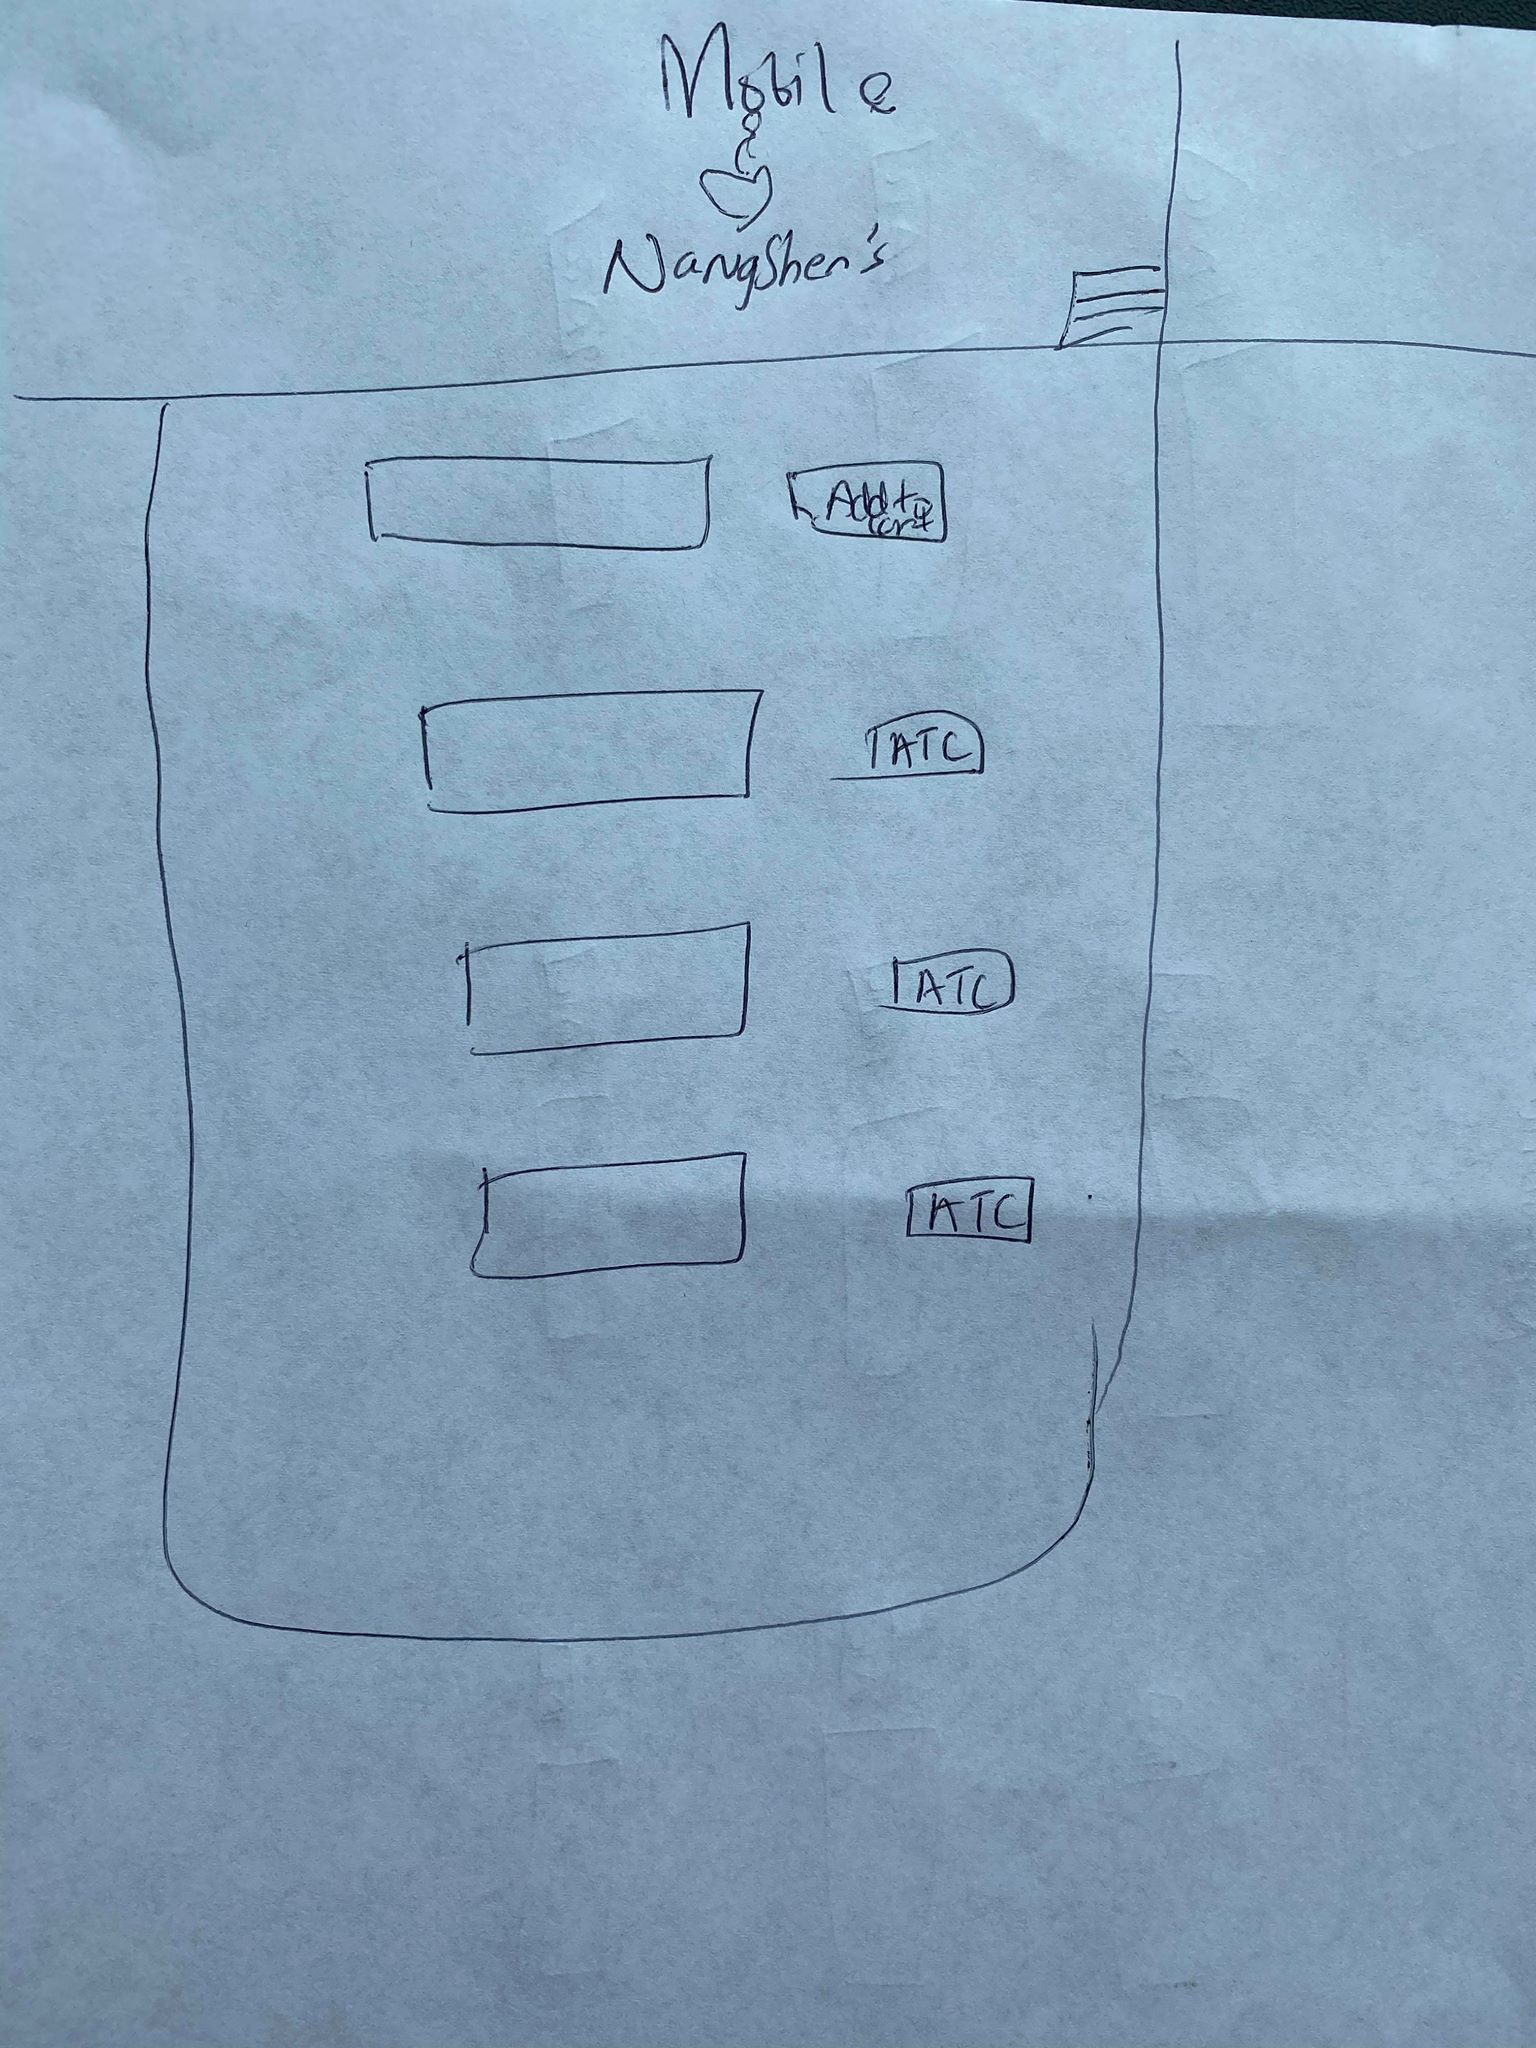 Mobile
NangShen's
Add to
cart
ATC
ATC
ATC